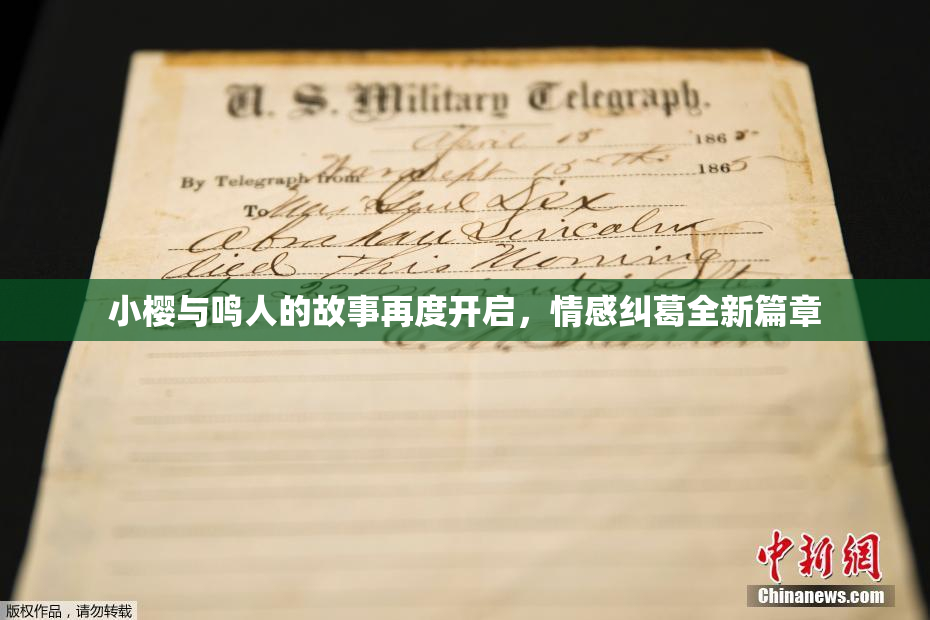 U. S. Military Telegraph.
April 15 1865
By Telegraph from War Dept 15th 1865
To Maj Genl Dix
Abraham Lincoln
died This Morning
22 minutes after
小樱与鸣人的故事再度开启，情感纠葛全新篇章
E. M. Stanton
中新网
Chinanews.com
版权作品，请勿转载